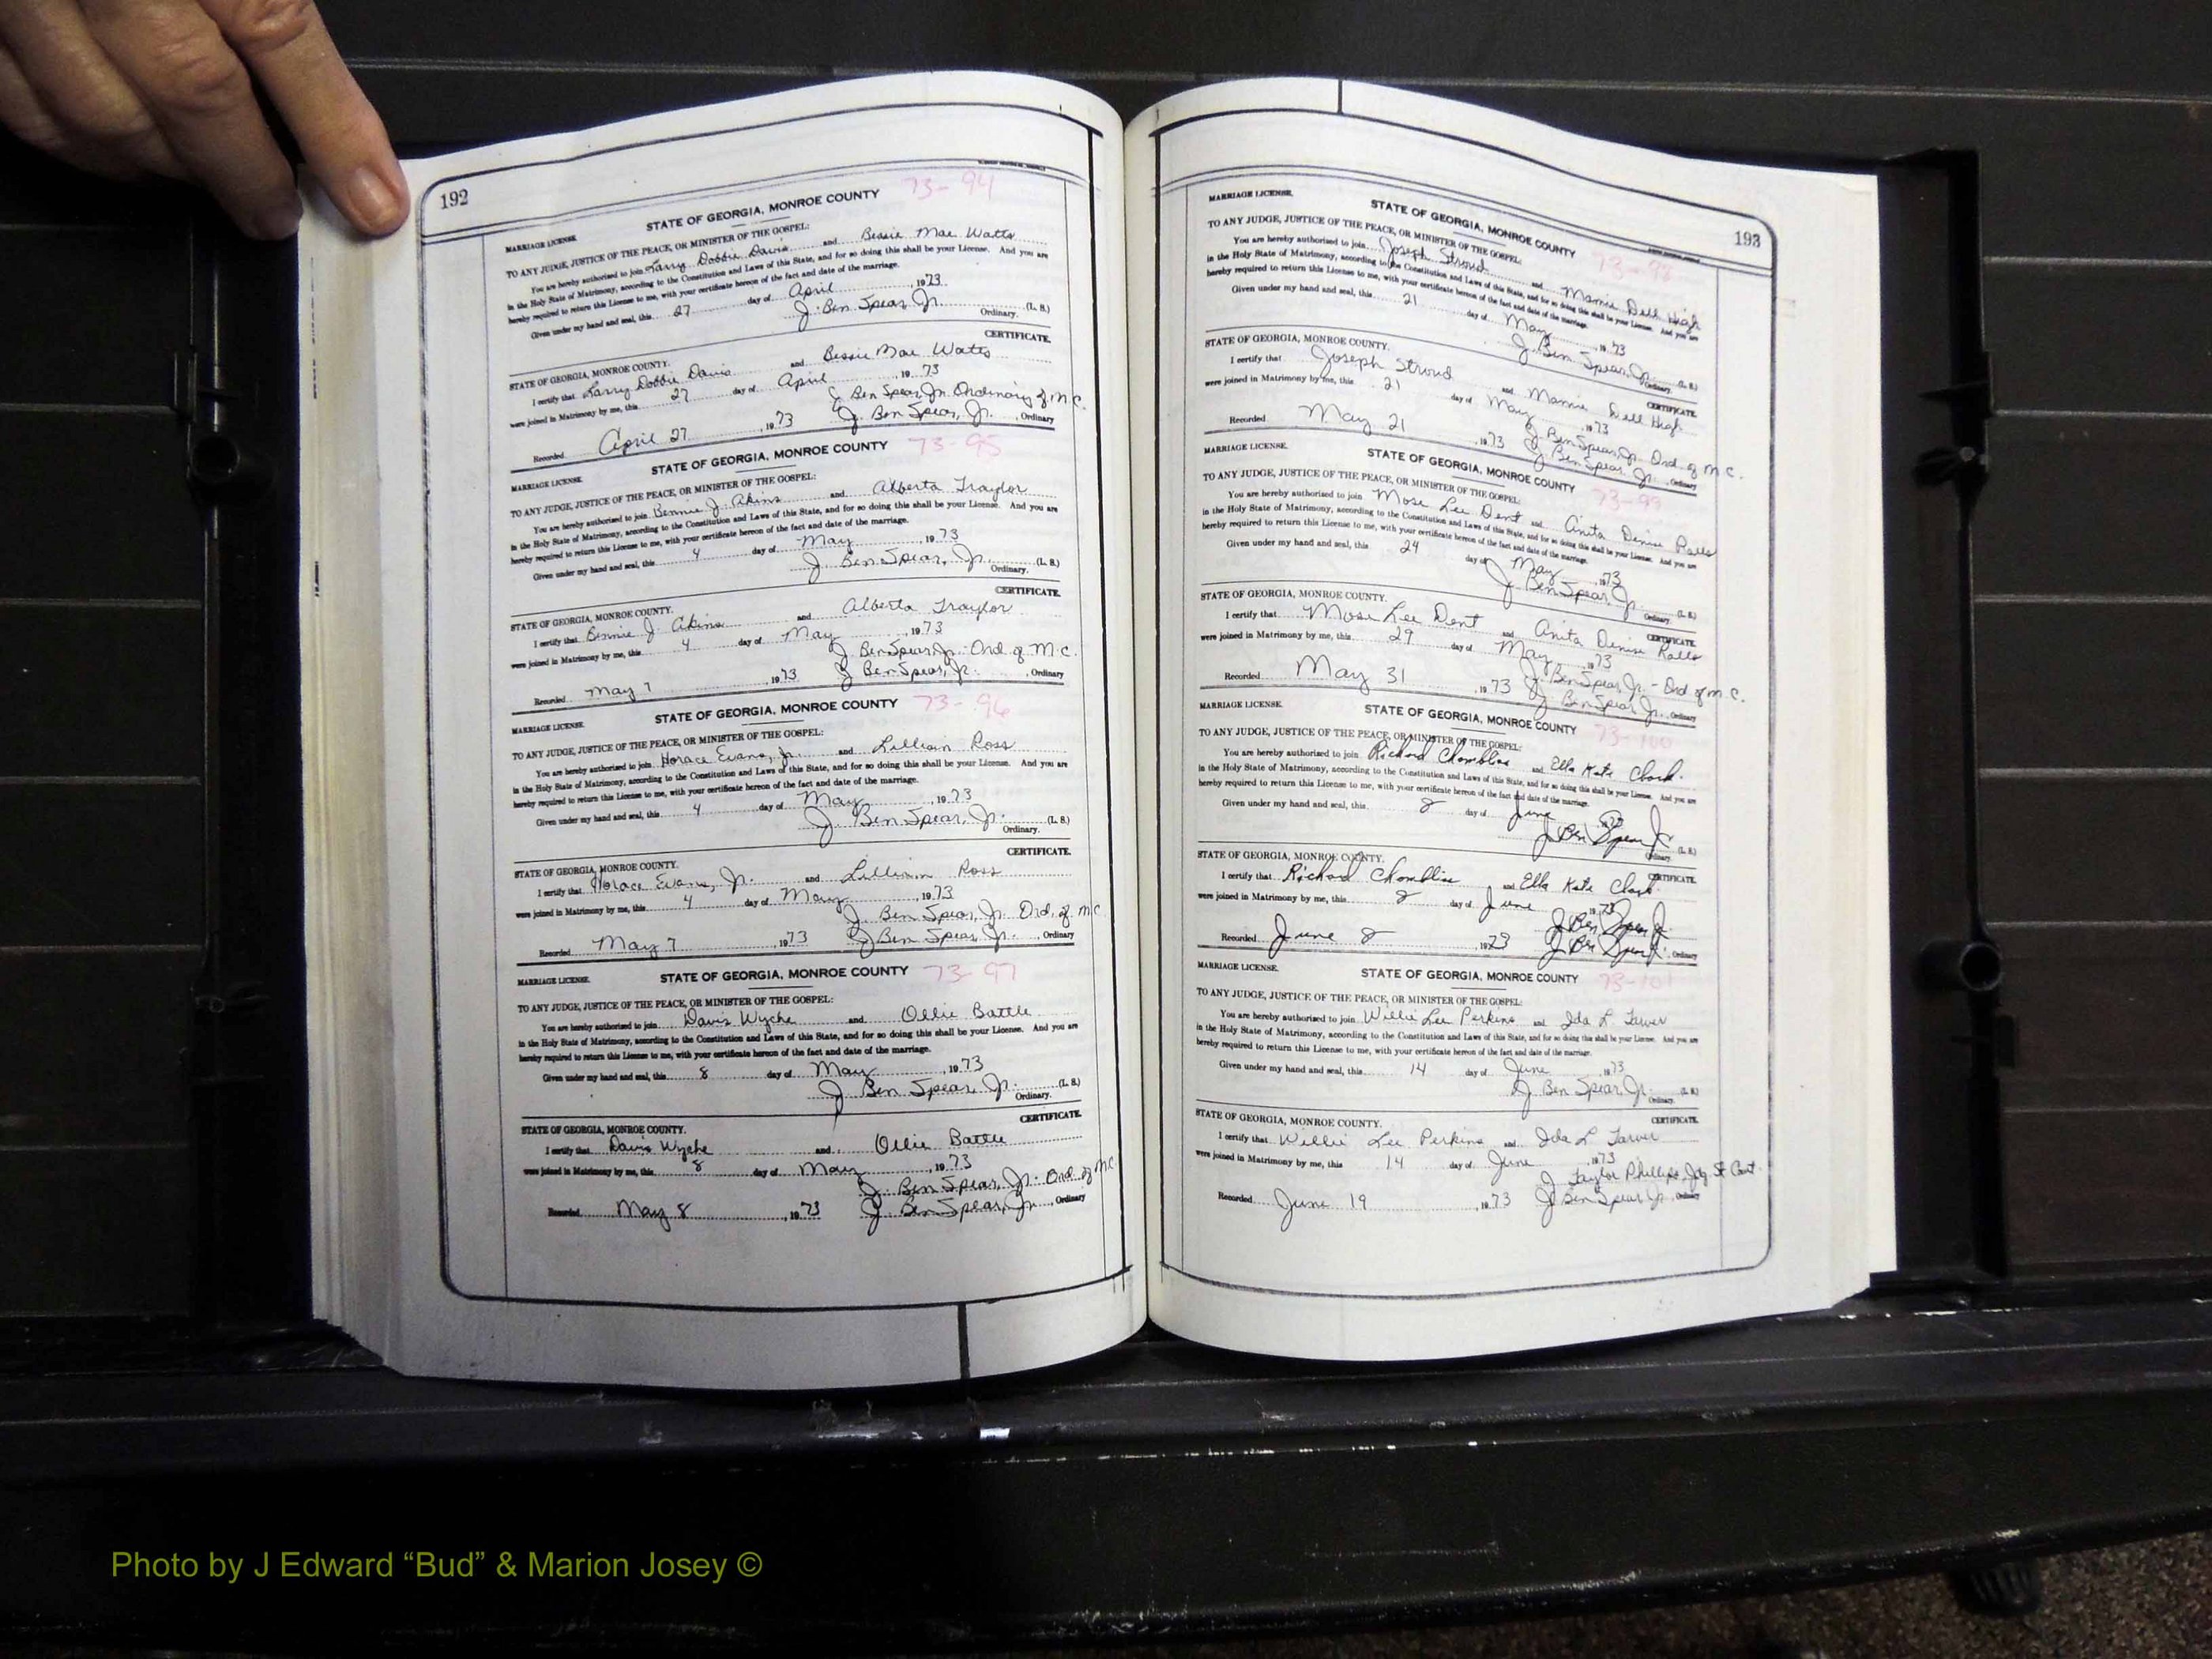 192
73-94
STATE OF GEORGIA, MONROE COUNTY
MARRIAGE LICENSE.
TO ANY JUDGE, JUSTICE OF THE PEACE, OR MINISTER OF THE GOSPEL:
You are hereby authorized to join Larry Dobbie Davis and Bessie Mae Watts
in the Holy State of Matrimony, according to the Constitution and Laws of this State, and for so doing this shall be your License. And you are
hereby required to return this License to me, with your certificate hereon of the fact and date of the marriage.
Given under my hand and seal, this 27 day of April, 1973
J. Ben Spear, Jr. (L. S.)
Ordinary.
CERTIFICATE.
STATE OF GEORGIA, MONROE COUNTY.
I certify that Larry Dobbie Davis and Bessie Mae Watts
were joined in Matrimony by me, this 27 day of April, 1973
J Ben Spear, Jr. Ordinary of M.C.
Recorded April 27, 1973 J. Ben Spear, Jr., Ordinary
STATE OF GEORGIA, MONROE COUNTY 73-95
MARRIAGE LICENSE.
TO ANY JUDGE, JUSTICE OF THE PEACE, OR MINISTER OF THE GOSPEL:
You are hereby authorized to join Bennie J. Akins and Alberta Traylor
in the Holy State of Matrimony, according to the Constitution and Laws of this State, and for so doing this shall be your License. And you are
hereby required to return this License to me, with your certificate hereon of the fact and date of the marriage.
Given under my hand and seal, this 4 day of May, 1973
J. Ben Spear, Jr. (L. S.)
Ordinary.
CERTIFICATE.
STATE OF GEORGIA, MONROE COUNTY.
I certify that Bennie J. Akins and Alberta Traylor
were joined in Matrimony by me, this 4 day of May, 1973
J Ben Spear, Jr. - Ord. of M.C.
Recorded May 7, 1973 J Ben Spear, Jr., Ordinary
STATE OF GEORGIA, MONROE COUNTY 73-96
MARRIAGE LICENSE.
TO ANY JUDGE, JUSTICE OF THE PEACE, OR MINISTER OF THE GOSPEL:
You are hereby authorized to join Horace Evans, Jr. and Lillian Ross
in the Holy State of Matrimony, according to the Constitution and Laws of this State, and for so doing this shall be your License. And you are
hereby required to return this License to me, with your certificate hereon of the fact and date of the marriage.
Given under my hand and seal, this 4 day of May, 1973
J. Ben Spear, Jr. (L. S.)
Ordinary.
CERTIFICATE.
STATE OF GEORGIA, MONROE COUNTY.
I certify that Horace Evans, Jr. and Lillian Ross
were joined in Matrimony by me, this 4 day of May, 1973
J. Ben Spear, Jr. Ord. of M.C
Recorded May 7, 1973 J Ben Spear, Jr., Ordinary
MARRIAGE LICENSE. STATE OF GEORGIA, MONROE COUNTY 73-97
TO ANY JUDGE, JUSTICE OF THE PEACE, OR MINISTER OF THE GOSPEL:
You are hereby authorized to join Davis Wyche and Ollie Battle
in the Holy State of Matrimony, according to the Constitution and Laws of this State, and for so doing this shall be your License. And you are
hereby required to return this License to me, with your certificate hereon of the fact and date of the marriage.
Given under my hand and seal, this 8 day of May, 1973
J Ben Spear, Jr. (L. S.)
Ordinary.
CERTIFICATE.
STATE OF GEORGIA, MONROE COUNTY.
I certify that Davis Wyche and Ollie Battle
were joined in Matrimony by me, this 8 day of May, 1973
J. Ben Spear, Jr. Ord. of M.C.
Recorded May 8, 1973 J Ben Spear, Jr., Ordinary
193
MARRIAGE LICENSE.
STATE OF GEORGIA, MONROE COUNTY 73-98
TO ANY JUDGE, JUSTICE OF THE PEACE, OR MINISTER OF THE GOSPEL:
You are hereby authorized to join Joseph Stroud and Mamie Dell High
in the Holy State of Matrimony, according to the Constitution and Laws of this State, and for so doing this shall be your License. And you are
hereby required to return this License to me, with your certificate hereon of the fact and date of the marriage.
Given under my hand and seal, this 21 day of May, 1973
J. Ben Spear, Jr. (L. S.)
Ordinary.
STATE OF GEORGIA, MONROE COUNTY.
CERTIFICATE.
I certify that Joseph Stroud and Mamie Dell High
were joined in Matrimony by me, this 21 day of May, 1973
J Ben Spear, Jr. Ord. of M.C.
Recorded May 21, 1973 J Ben Spear, Jr., Ordinary
MARRIAGE LICENSE.
STATE OF GEORGIA, MONROE COUNTY 73-99
TO ANY JUDGE, JUSTICE OF THE PEACE, OR MINISTER OF THE GOSPEL:
You are hereby authorized to join Mose Lee Dent and Anita Denise Ralls
in the Holy State of Matrimony, according to the Constitution and Laws of this State, and for so doing this shall be your License. And you are
hereby required to return this License to me, with your certificate hereon of the fact and date of the marriage.
Given under my hand and seal, this 24 day of May, 1973
J. Ben Spear, Jr. (L. S.)
Ordinary.
STATE OF GEORGIA, MONROE COUNTY.
CERTIFICATE.
I certify that Mose Lee Dent and Anita Denise Ralls
were joined in Matrimony by me, this 29 day of May, 1973
J. Ben Spear, Jr. - Ord of M.C.
Recorded May 31, 1973 J Ben Spear, Jr., Ordinary
MARRIAGE LICENSE.
STATE OF GEORGIA, MONROE COUNTY 73-100
TO ANY JUDGE, JUSTICE OF THE PEACE, OR MINISTER OF THE GOSPEL:
You are hereby authorized to join Richard Chambliss and Ella Kate Clark
in the Holy State of Matrimony, according to the Constitution and Laws of this State, and for so doing this shall be your License. And you are
hereby required to return this License to me, with your certificate hereon of the fact and date of the marriage.
Given under my hand and seal, this 8 day of June 1973
J Ben Spear Jr (L. S.)
Ordinary.
STATE OF GEORGIA, MONROE COUNTY.
CERTIFICATE.
I certify that Richard Chambliss and Ella Kate Clark
were joined in Matrimony by me, this 8 day of June 1973
J Ben Spear Jr
Recorded June 8, 1973 J Ben Spear Jr, Ordinary
MARRIAGE LICENSE.
STATE OF GEORGIA, MONROE COUNTY 73-101
TO ANY JUDGE, JUSTICE OF THE PEACE, OR MINISTER OF THE GOSPEL:
You are hereby authorized to join Willie Lee Perkins and Ida L Tarver
in the Holy State of Matrimony, according to the Constitution and Laws of this State, and for so doing this shall be your License. And you are
hereby required to return this License to me, with your certificate hereon of the fact and date of the marriage.
Given under my hand and seal, this 14 day of June, 1973
J. Ben Spear, Jr. (L. S.)
Ordinary.
STATE OF GEORGIA, MONROE COUNTY. CERTIFICATE.
I certify that Willie Lee Perkins and Ida L Tarver
were joined in Matrimony by me, this 14 day of June, 1973
J Taylor Phillips, Jdg. St Court
Recorded June 19, 1973 J Ben Spear Jr., Ordinary
Photo by J Edward “Bud” & Marion Josey ©